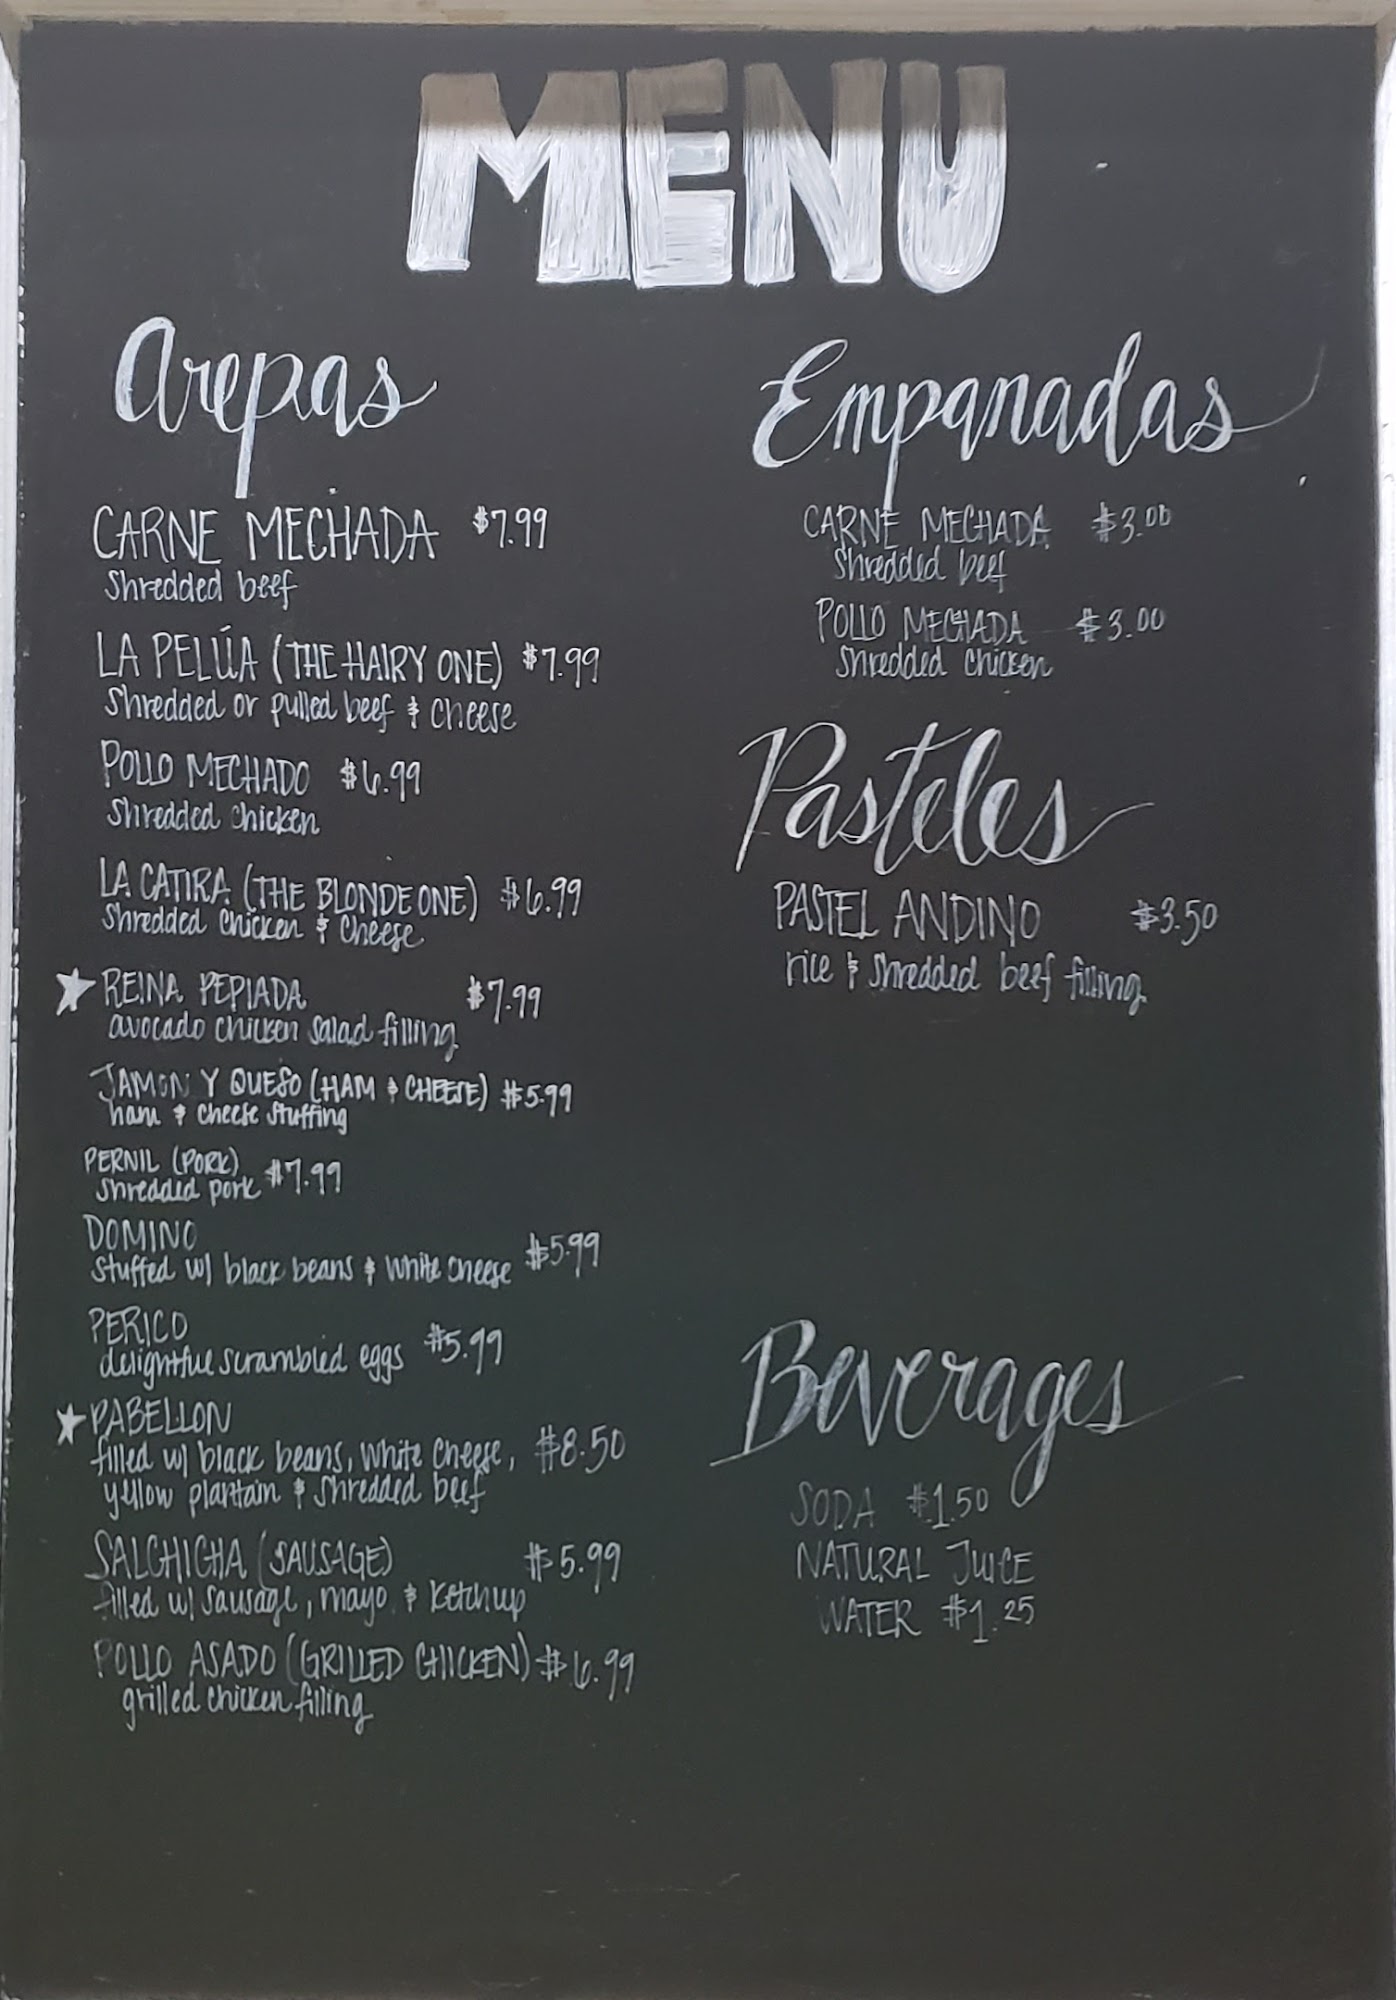 MENU
Arepas
CARNE MECHADA $7.99
Shredded beef
LA PELÚA (THE HAIRY ONE) $7.99
Shredded or pulled beef & cheese
POLLO MECHADO $6.99
Shredded chicken
LA CATIRA (THE BLONDE ONE) $6.99
Shredded chicken & cheese
REINA PEPIADA $7.99
avocado chicken salad filling
JAMON Y QUESO (HAM & CHEESE) $5.99
ham & cheese stuffing
PERNIL (PORK) $7.99
Shredded pork
DOMINO $5.99
Stuffed w/ black beans & white cheese
PERICO $5.99
delightful scrambled eggs
PABELLON
filled w/ black beans, white cheese, $8.50
yellow plantain & shredded beef
SALCHICHA (SAUSAGE) $5.99
filled w/ sausage, mayo & ketchup
POLLO ASADO (GRILLED CHICKEN) $6.99
grilled chicken filling
Empanadas
CARNE MECHADA $3.00
Shredded beef
POLLO MECHADA $3.00
Shredded chicken
Pasteles
PASTEL ANDINO $3.50
rice & shredded beef filling
Beverages
SODA $1.50
NATURAL JUICE
WATER $1.25